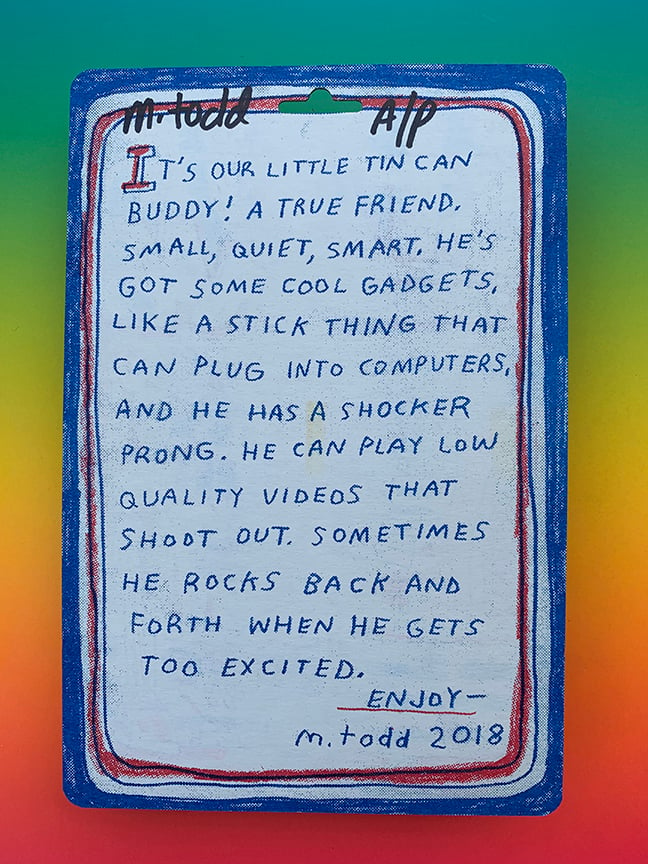 m.todd A/P
IT'S OUR LITTLE TIN CAN
BUDDY! A TRUE FRIEND.
SMALL, QUIET, SMART. HE'S
GOT SOME COOL GADGETS,
LIKE A STICK THING THAT
CAN PLUG INTO COMPUTERS,
AND HE HAS A SHOCKER
PRONG. HE CAN PLAY LOW
QUALITY VIDEOS THAT
SHOOT OUT. SOMETIMES
HE ROCKS BACK AND
FORTH WHEN HE GETS
TOO EXCITED.
ENJOY—
m.todd 2018